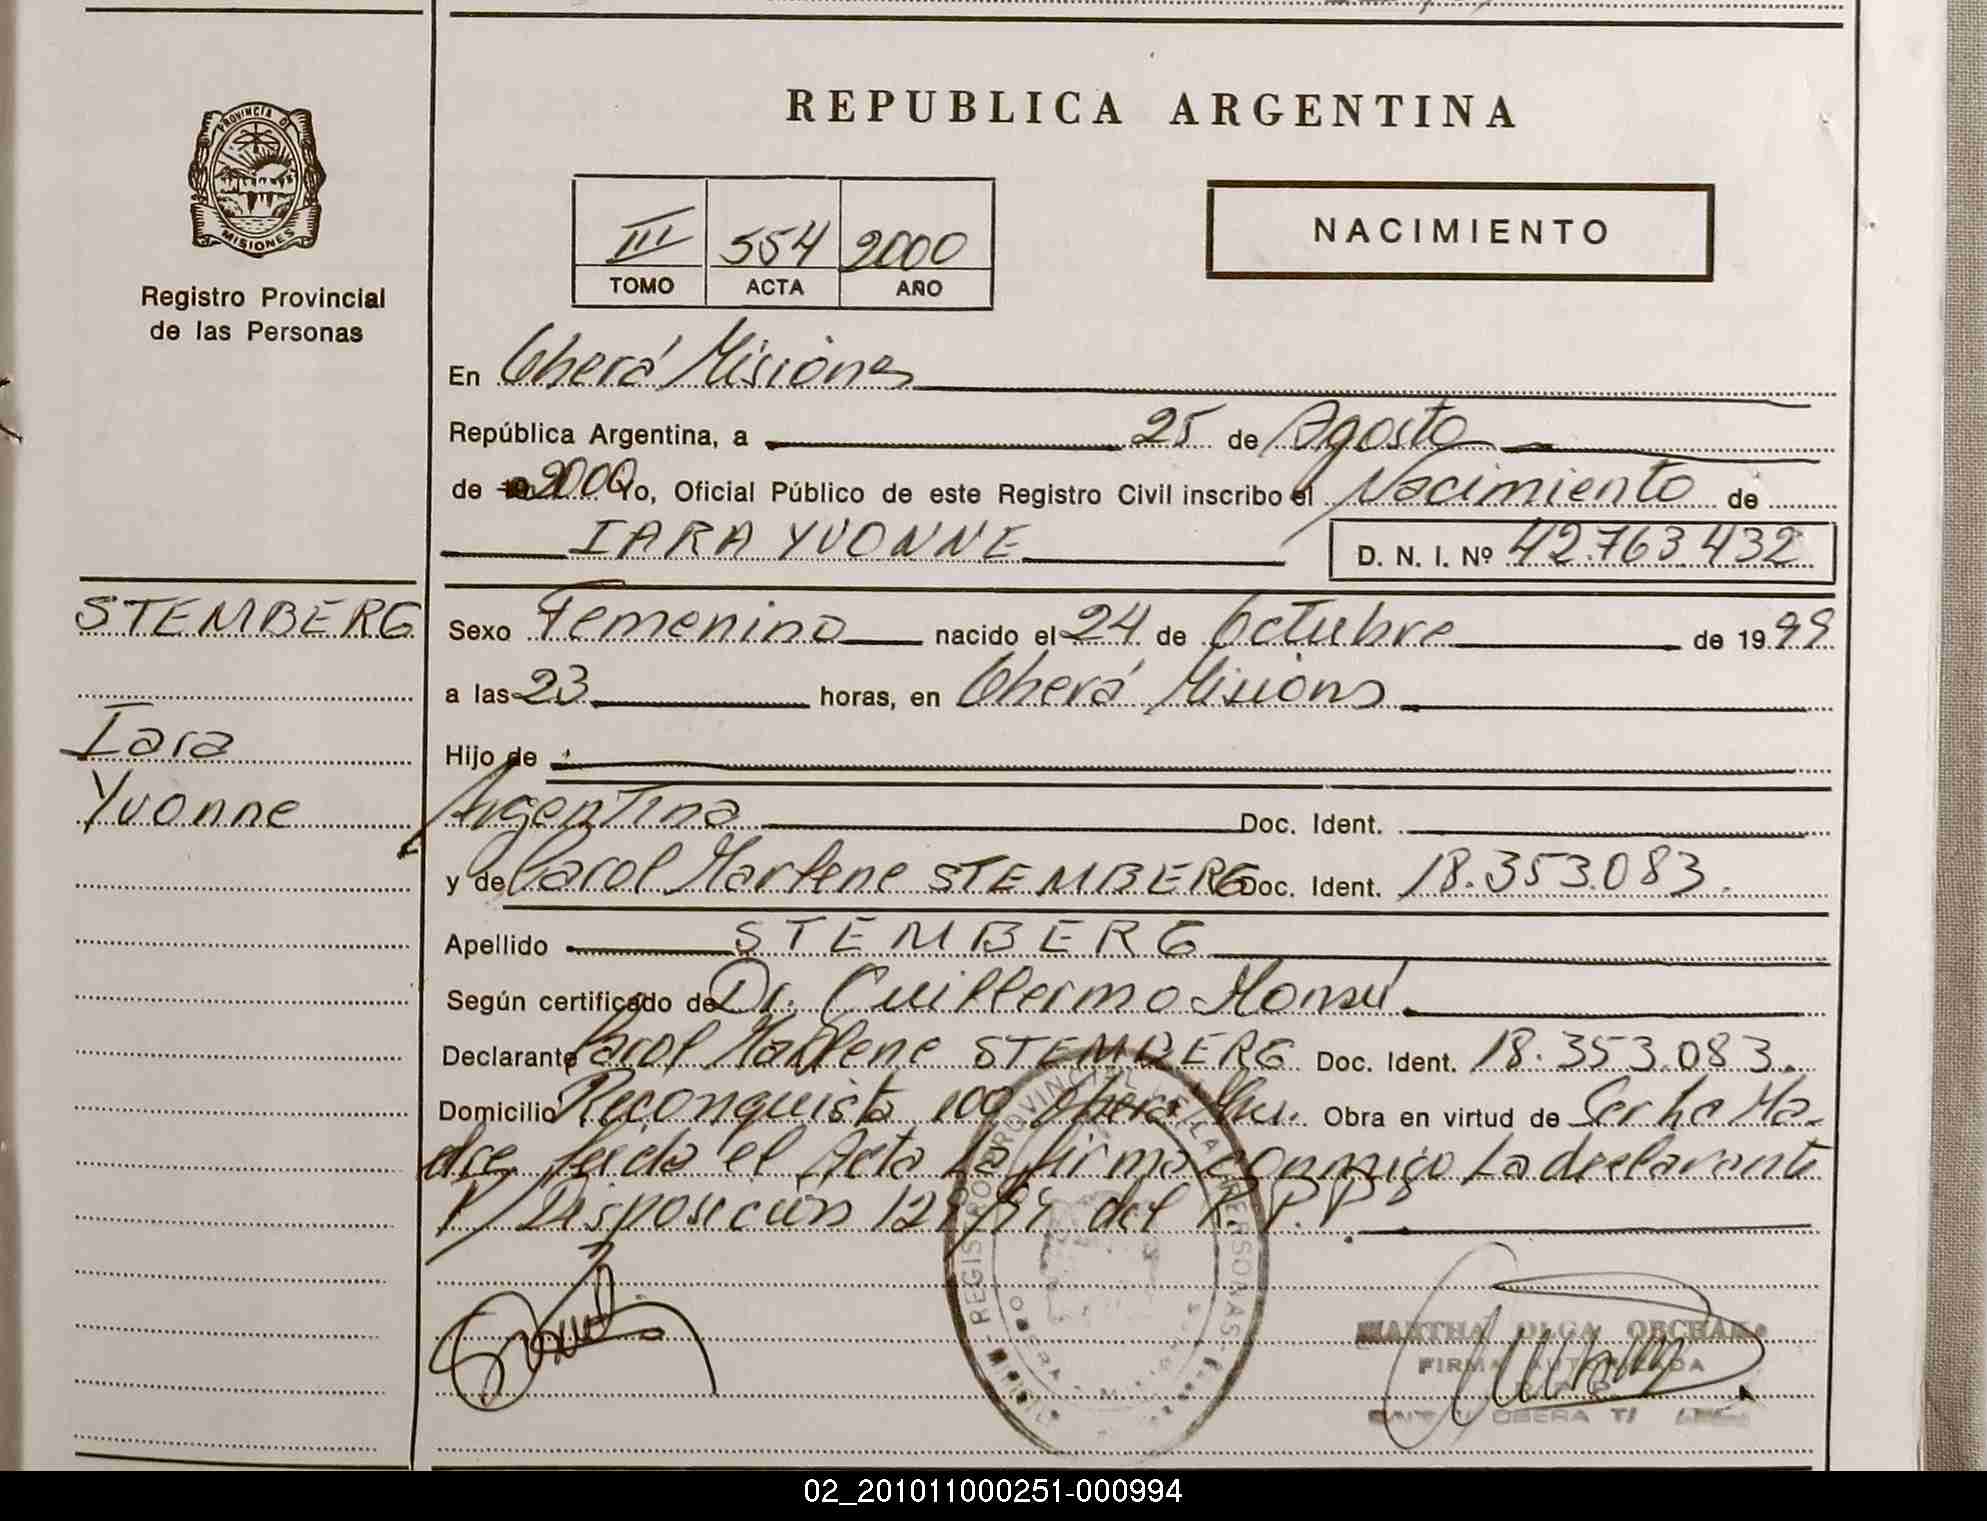 REPUBLICA ARGENTINA
PROVINCIA D
MISIONES
Registro Provincial
de las Personas
III 554 2000
TOMO ACTA AÑO
NACIMIENTO
En Oberá Misiones
República Argentina, a 25 de Agosto
de 2000 Yo, Oficial Público de este Registro Civil inscribo el Nacimiento de
IARA YVONNE D. N. I. Nº 42.763.432
STEMBERG
Iara
Yvonne
Sexo Femenino nacido el 24 de Octubre de 19 99
a las 23 horas, en Oberá Misions
Hijo de
Argentina Doc. Ident.
y de Carol Marlene STEMBERG Doc. Ident. 18.353.083.
Apellido STEMBERG
Según certificado de Dr. Guillermo
Declarante Carol Marlene STEMBERG Doc. Ident. 18.353.083.
Domicilio Reconquista 100 Oberá Mnes. Obra en virtud de Ser la Ma-
dre leida el Acta La firma conmigo La declarante
P/ Disposición del R.P.P.
REGISTRO PROVINCIAL DE LAS PERSONAS
OBERA
MARTHA OLGA
FIRMA AUTORIZADA
R.P.P.
OBERA
02_201011000251-000994